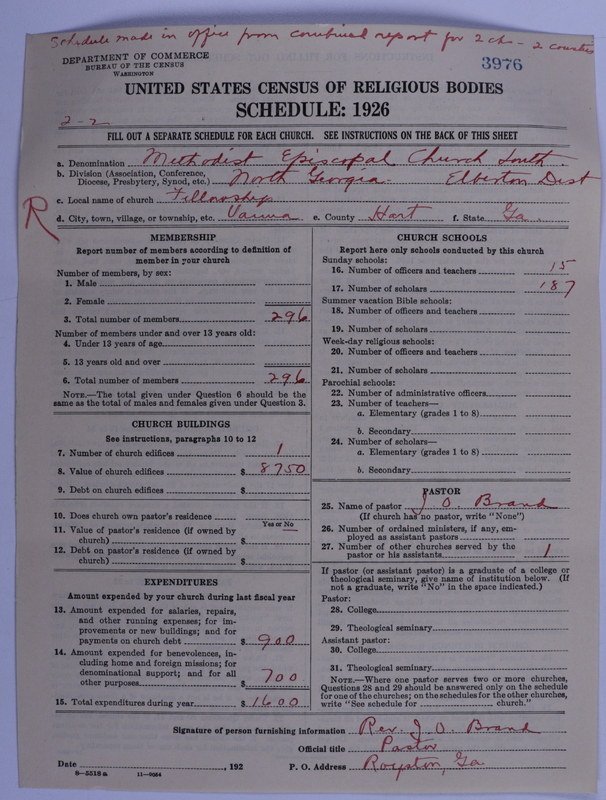 Schedule made in office from combined report for 2 ch - 2 counties
DEPARTMENT OF COMMERCE
BUREAU OF THE CENSUS
WASHINGTON
3976
UNITED STATES CENSUS OF RELIGIOUS BODIES
SCHEDULE: 1926
2-2
FILL OUT A SEPARATE SCHEDULE FOR EACH CHURCH. SEE INSTRUCTIONS ON THE BACK OF THIS SHEET
a. Denomination Methodist Episcopal Church South.
b. Division (Association, Conference,
Diocese, Presbytery, Synod, etc.) North Georgia. Elberton Dist
c. Local name of church Fellowship
R
d. City, town, village, or township, etc. Vanna e. County Hart f. State Ga.
MEMBERSHIP
Report number of members according to definition of
member in your church
Number of members, by sex:
1. Male
2. Female
3. Total number of members 296
Number of members under and over 13 years old:
4. Under 13 years of age
5. 13 years old and over
6. Total number of members 296
NOTE.—The total given under Question 6 should be
same as the total of males and females given under Question 3.
CHURCH BUILDINGS
See instructions, paragraphs 10 to 12
7. Number of church edifices 1
8. Value of church edifices $ 8750
9. Debt on church edifices $
10. Does church own pastor's residence
Yes or No
11. Value of pastor's residence (if owned by
church) $
12. Debt on pastor's residence (if owned by
church) $
EXPENDITURES
Amount expended by your church during last fiscal year
13. Amount expended for salaries, repairs,
and other running expenses; for im-
provements or new buildings; and for
payments on church debt $ 900
14. Amount expended for benevolences, in-
cluding home and foreign missions; for
denominational support; and for all
other purposes $ 700
15. Total expenditures during year $ 1600
CHURCH SCHOOLS
Report here only schools conducted by this church
Sunday schools:
16. Number of officers and teachers 15
17. Number of scholars 187
Summer vacation Bible schools:
18. Number of officers and teachers
19. Number of scholars
Week-day religious schools:
20. Number of officers and teachers
21. Number of scholars
Parochial schools:
22. Number of administrative officers
23. Number of teachers—
a. Elementary (grades 1 to 8)
b. Secondary
24. Number of scholars—
a. Elementary (grades 1 to 8)
b. Secondary
PASTOR
25. Name of pastor J O. Brand
(If church has no pastor, write "None")
26. Number of ordained ministers, if any, em-
ployed as assistant pastors
27. Number of other churches served by the
pastor or his assistants 1
If pastor (or assistant pastor) is a graduate of a college or
theological seminary, give name of institution below. (If
not a graduate, write "No" in the space indicated.)
Pastor:
28. College
29. Theological seminary
Assistant pastor:
30. College
31. Theological seminary
NOTE.—Where one pastor serves two or more churches,
Questions 28 and 29 should be answered only on the schedule
for one of the churches; on the schedules for the other churches,
write "See schedule for church."
Signature of person furnishing information Rev. J. O. Brand
Official title Pastor
Date , 192 P. O. Address Royston, Ga
8-5518a 11-9054